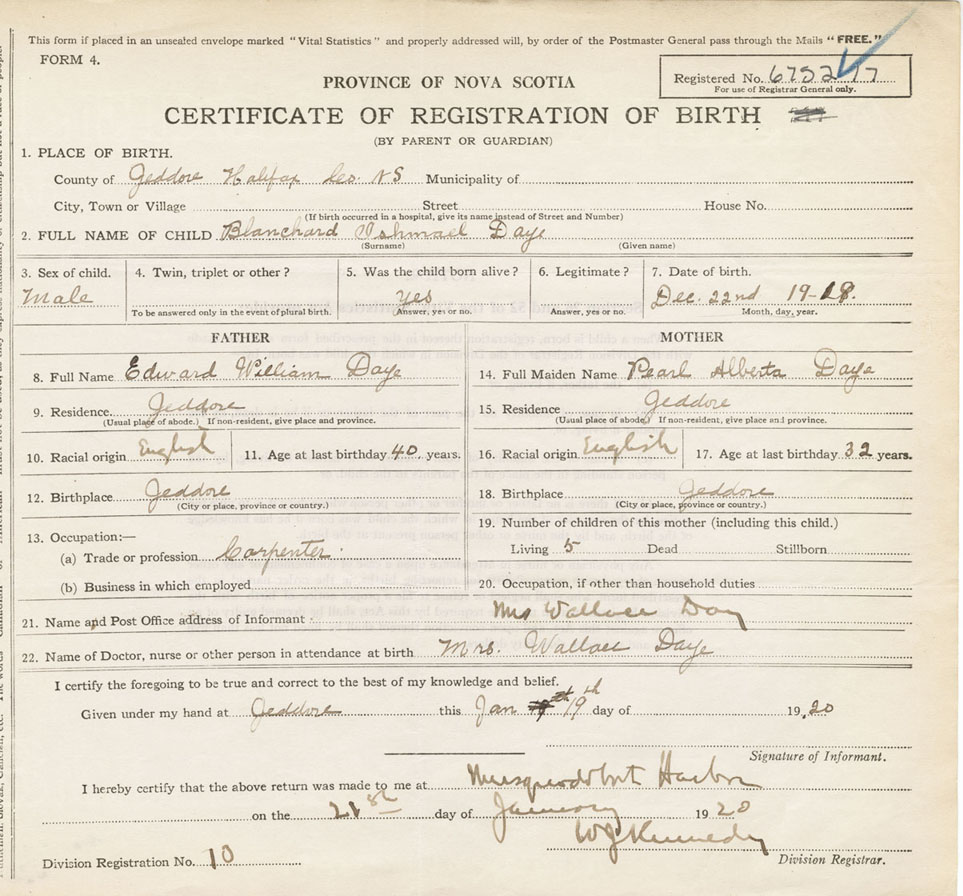 This form if placed in an unsealed envelope marked "Vital Statistics" and properly addressed will, by order of the Postmaster General pass through the Mails "FREE."
FORM 4.
PROVINCE OF NOVA SCOTIA
Registered No. 6752
For use of Registrar General only.
CERTIFICATE OF REGISTRATION OF BIRTH
(BY PARENT OR GUARDIAN)
1. PLACE OF BIRTH.
County of Jeddore Halifax Co. NS Municipality of
City, Town or Village Street House No.
(If birth occurred in a hospital, give its name instead of Street and Number)
2. FULL NAME OF CHILD Blanchard Ishmael Daye
(Surname) (Given name)
3. Sex of child. 4. Twin, triplet or other? 5. Was the child born alive? 6. Legitimate? 7. Date of birth.
Male Yes Dec. 22nd 19-18.
To be answered only in the event of plural birth. Answer, yes or no. Answer, yes or no. Month, day, year.
FATHER MOTHER
8. Full Name Edward William Daye 14. Full Maiden Name Pearl Alberta Daye
9. Residence. Jeddore 15. Residence Jeddore
(Usual place of abode.) If non-resident, give place and province. (Usual place of abode.) If non-resident, give place and province.
10. Racial origin English 11. Age at last birthday 40 years. 16. Racial origin English 17. Age at last birthday 32 years.
12. Birthplace Jeddore 18. Birthplace Jeddore
(City or place, province or country.) (City or place, province or country.)
13. Occupation:— 19. Number of children of this mother (including this child.)
(a) Trade or profession Carpenter. Living 5 Dead Stillborn
(b) Business in which employed 20. Occupation, if other than household duties
21. Name and Post Office address of Informant Mrs Wallace Day
22. Name of Doctor, nurse or other person in attendance at birth Mrs. Wallace Daye
I certify the foregoing to be true and correct to the best of my knowledge and belief.
Given under my hand at Jeddore this Jan 19th day of 1920
Signature of Informant.
I hereby certify that the above return was made to me at Musquodoboit Harbor
on the 21st day of January 1920
W J Kennedy
Division Registration No. 10 Division Registrar.